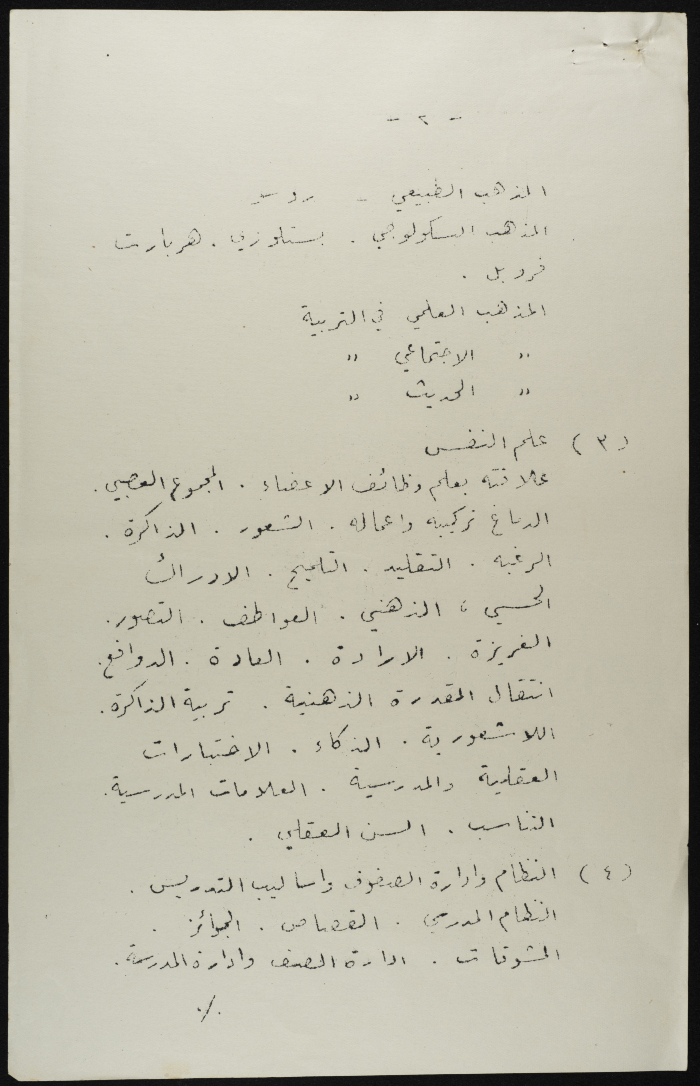 - ٢ -
المذهب الطبيعي - روسو
المذهب السكولوجي . بستلوزي . هربارت .
فروبل .
المذهب العلمي في التربية
" الاجتماعي "
" الحديث "
(٣) علم النفس
علاقته بعلم وظائف الاعضاء . المجموع العصبي .
الدماغ تركيبه واعماله . الشعور . الذاكرة .
الرغبه . التقليد . التلميح . الادراك
الحسي ، الذهني . العواطف . التصور .
الغريزة . الارادة . العادة . الدوافع .
انتقال المقدرة الذهنية . تربية الذاكرة .
اللاشعورية . الذكاء . الاختبارات
العقلية والمدرسية . العلامات المدرسية .
التناسب . السن العقلي .
(٤) النظام وادارة الصفوف واساليب التدريس .
النظام المدرسي . القصاص . الجوائز .
المشوقات . ادارة الصف وادارة المدرسة .
./.